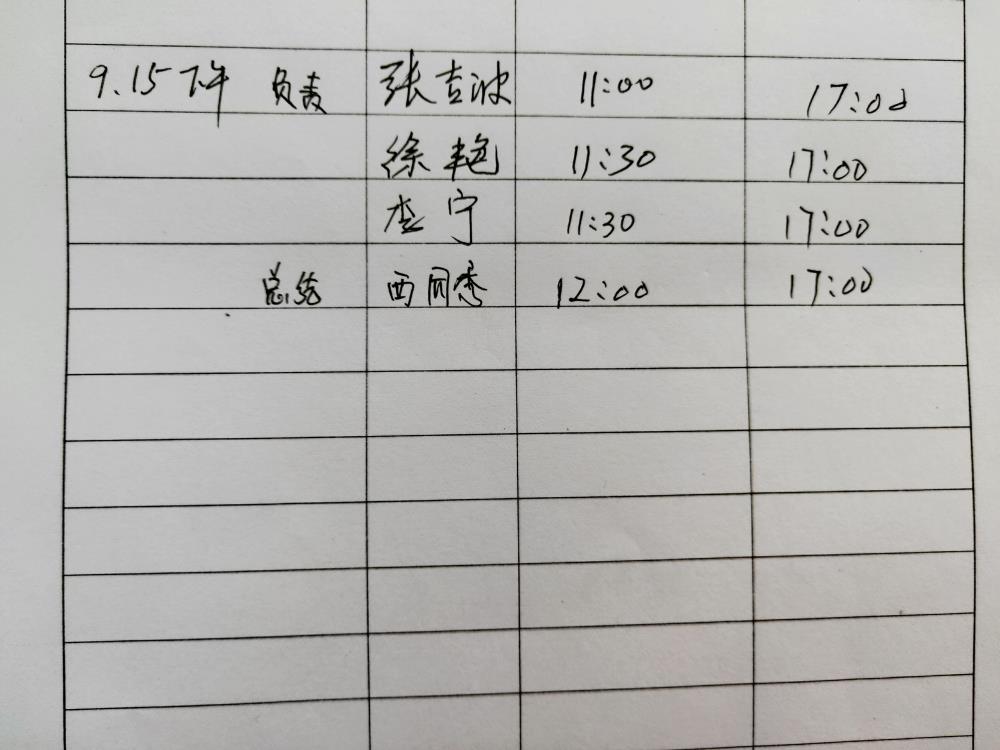 9.15下午 负责 张吉波 11:00 17:00
徐艳 11:30 17:00
李宁 11:30 17:00
总结 西同秀 12:00 17:00